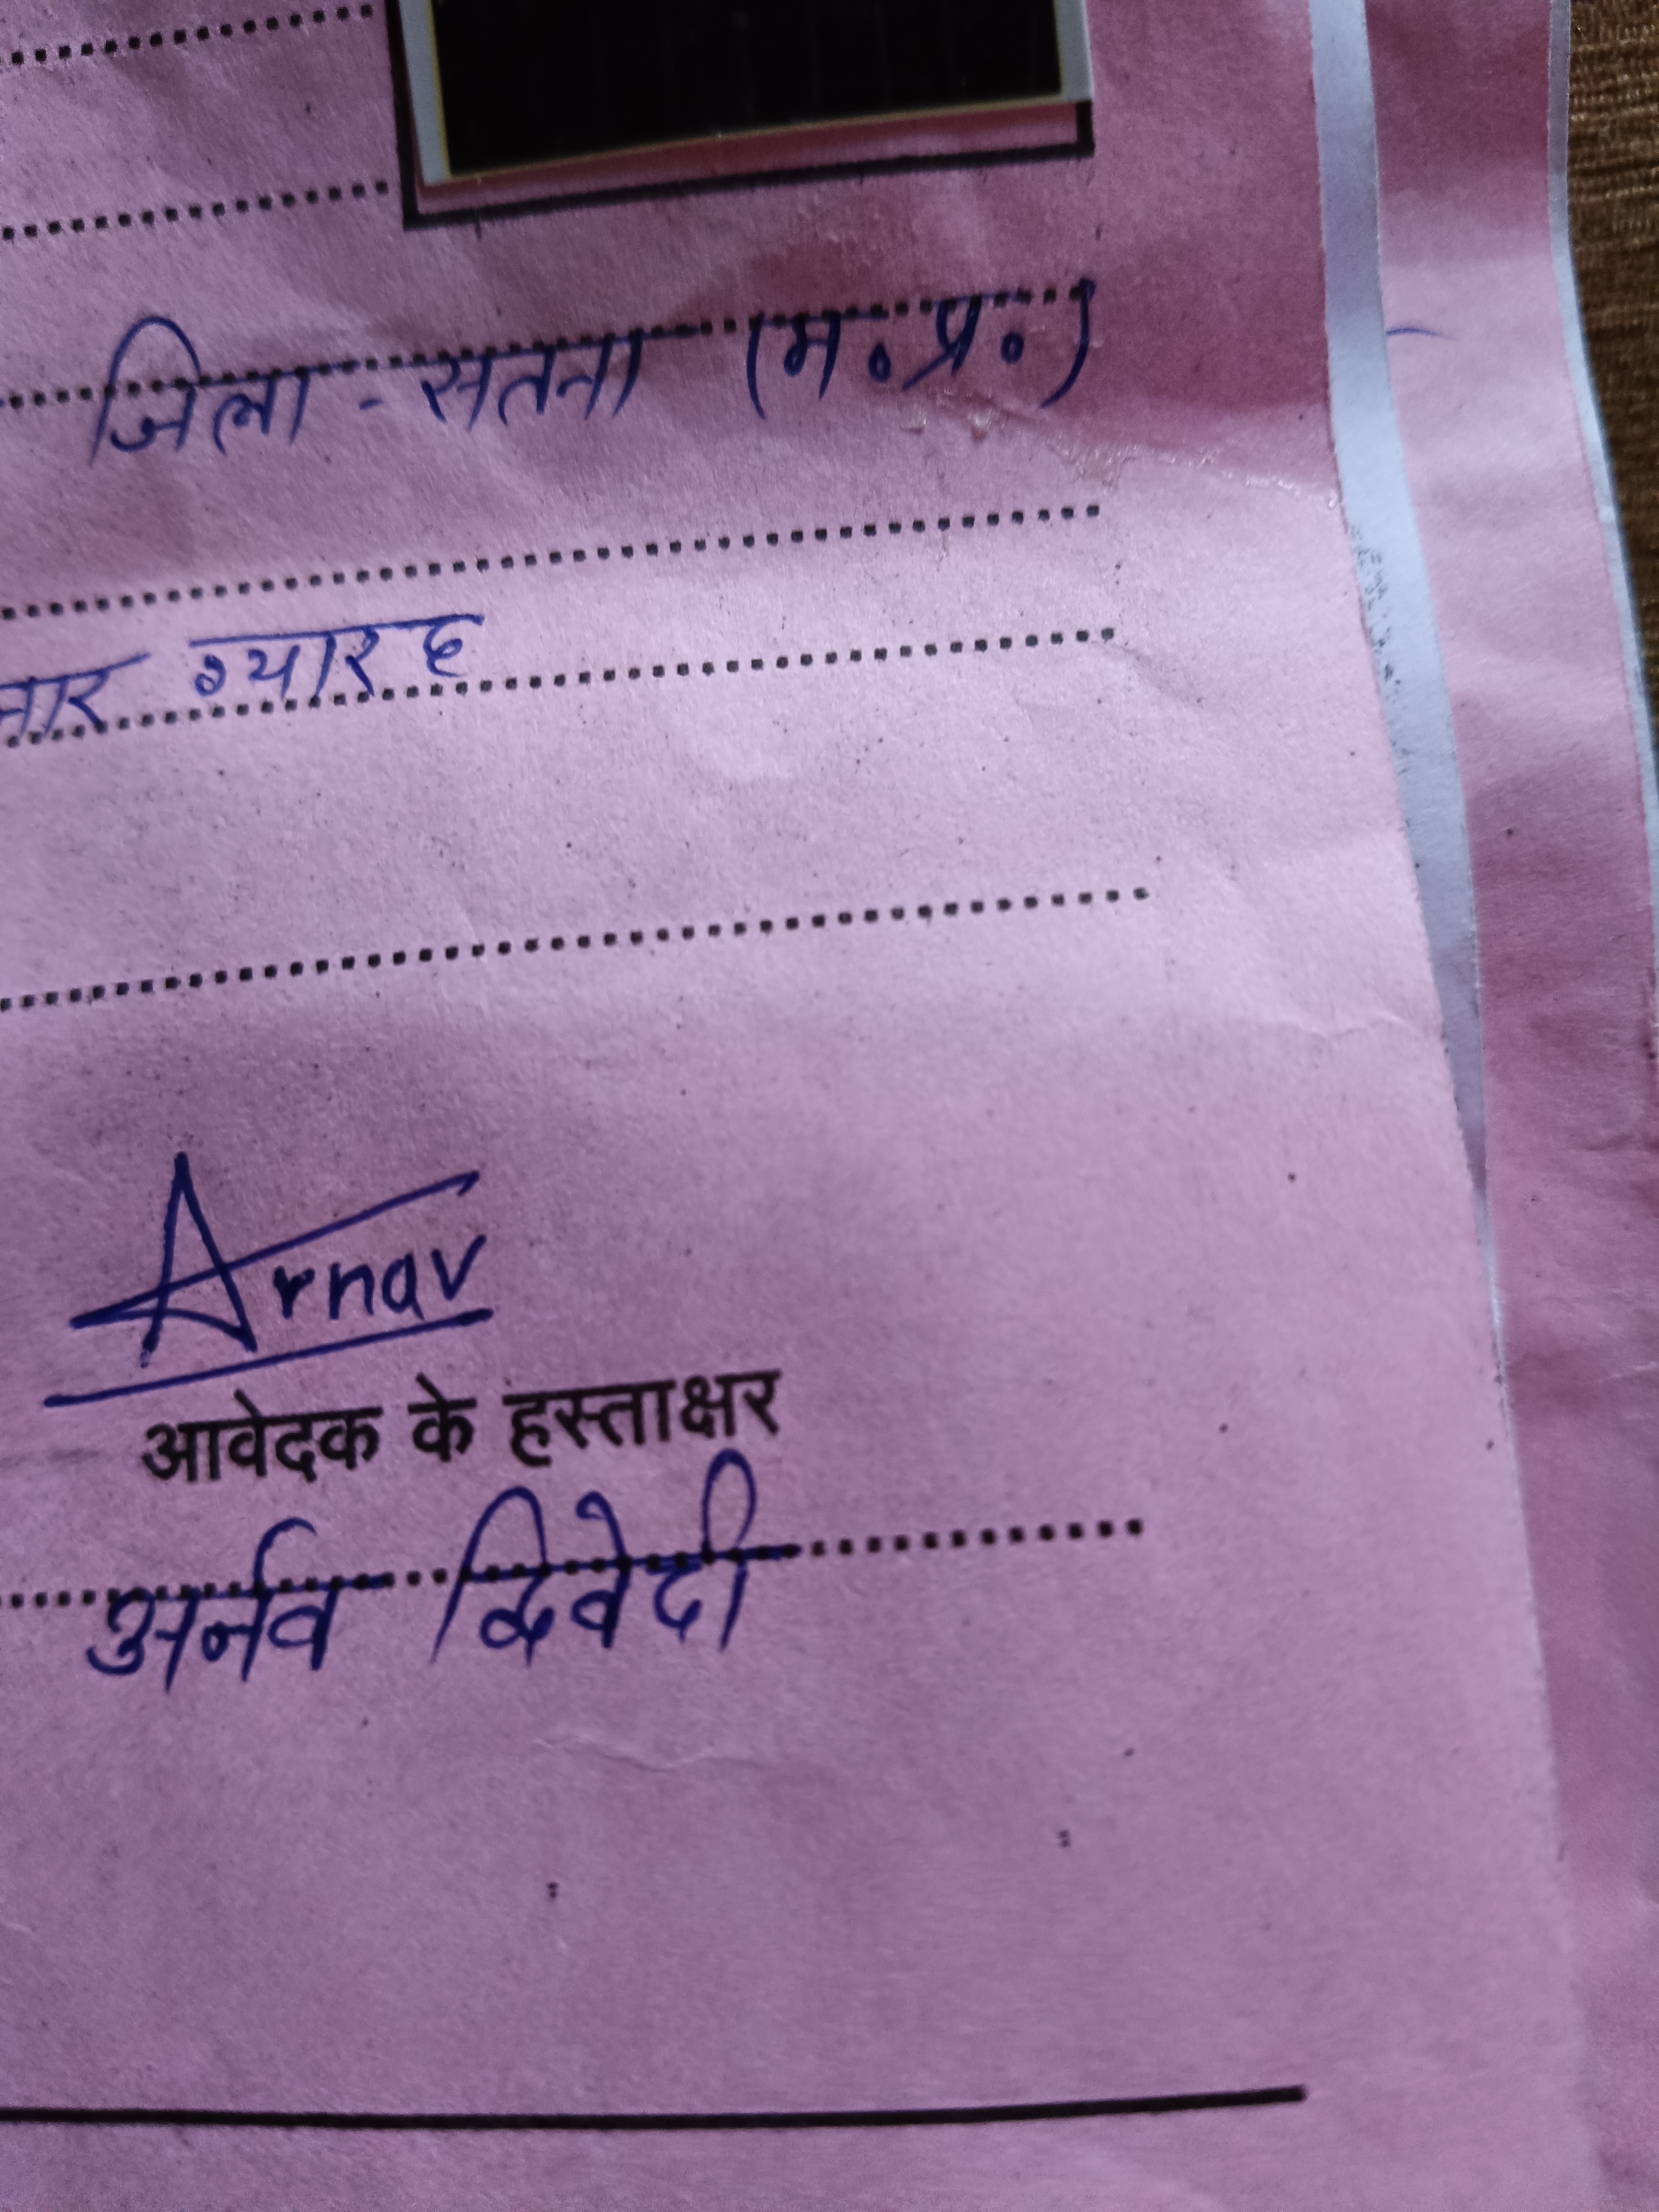 जिला - सतना (म.प्र.)
ग्यारह
Arnav
आवेदक के हस्ताक्षर
अर्नव द्विवेदी